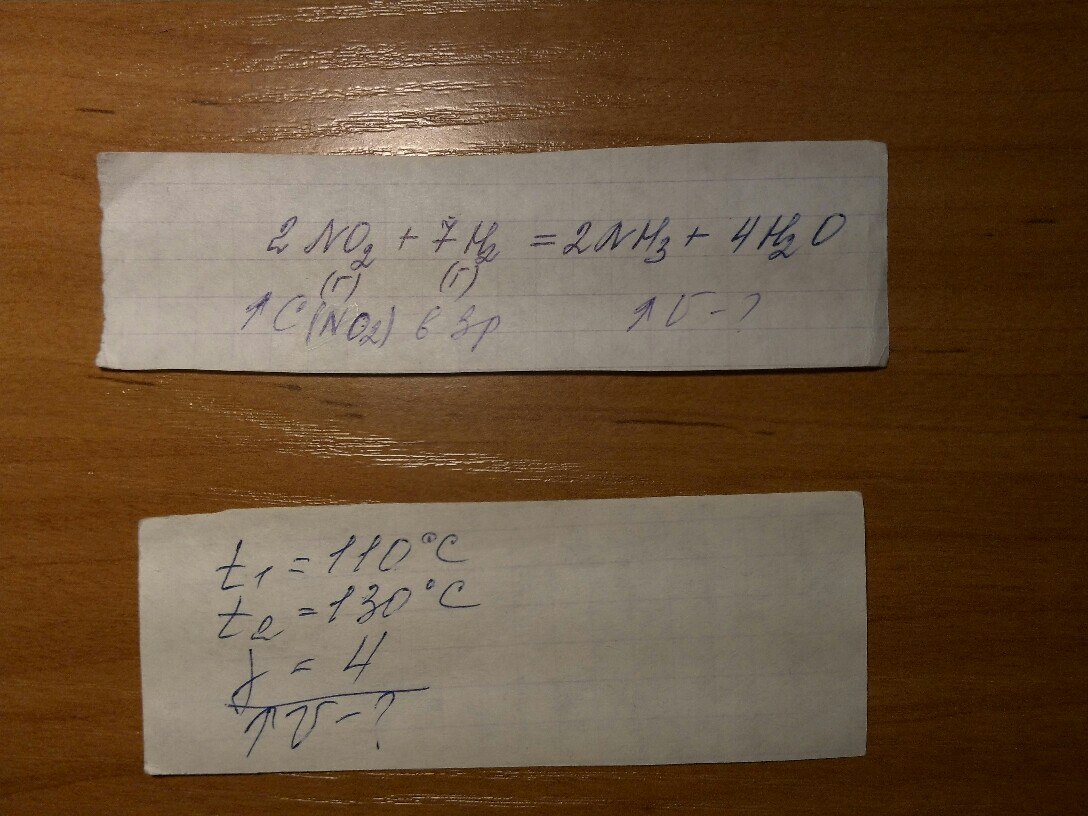 2NO₂ + 7H₂ = 2NH₃ + 4H₂O
(г) (г)
↑ C(NO₂) в 3р ↑ V - ?
t₁ = 110°C
t₂ = 130°C
γ = 4
↑ V - ?